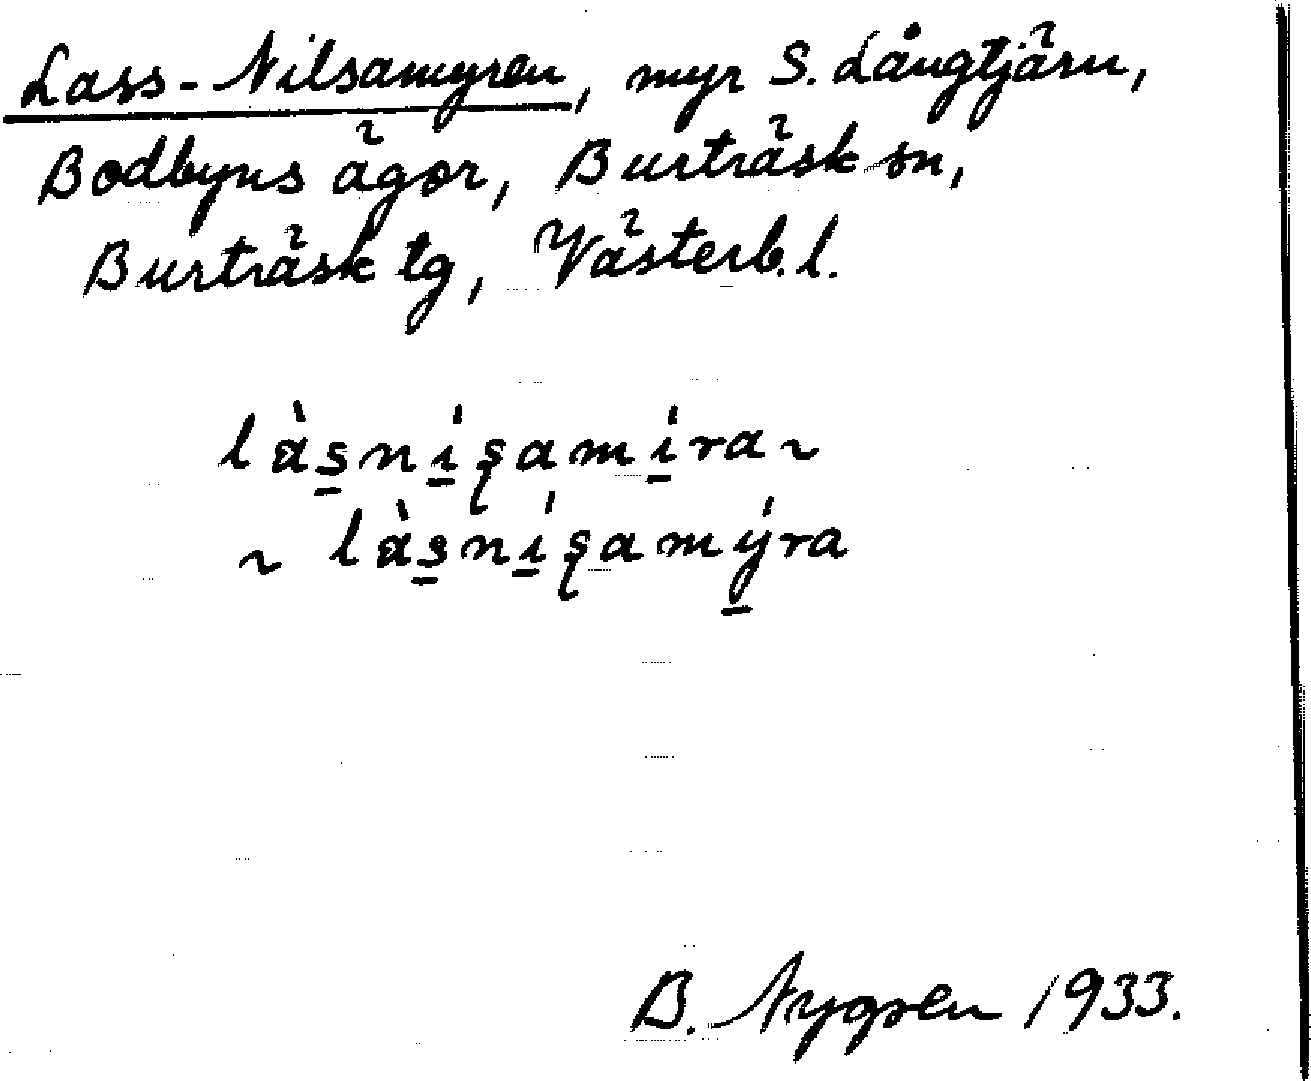 Lass-Nilsamyren, myr S. Långtjärn,
Bodbyns ägor, Burträsk sn,
Burträsk tg, Västerb. l.
là̱s̱ní̱ʂamí̱ra ~
~ là̱s̱ní̱ʂamý̱ra
B. Nygren 1933.